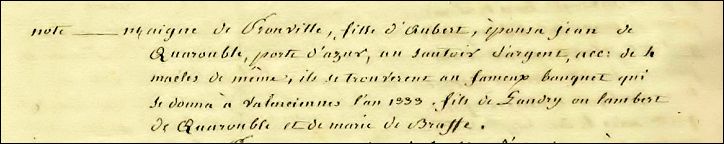 note —— maigne de Pronville, fille d'Aubert, épousa jean de
Quarouble, porte d'azur, au sautoir d'argent, acc: de 4
macles de même, ils se trouverent au fameux banquet qui
se donna à valenciennes l'an 1333. fils de Landry ou lambert
de Quarouble et de marie de Brasse.